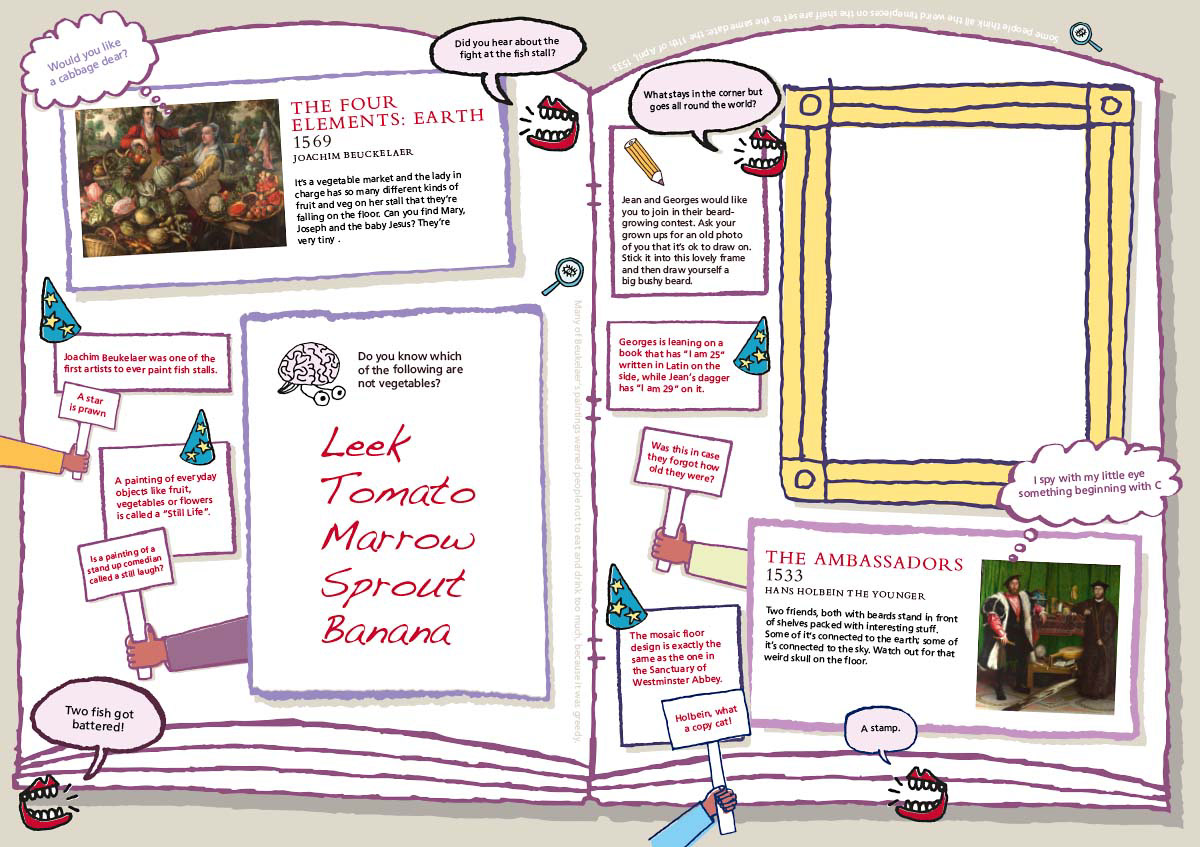 Would you like
a cabbage dear?
Did you hear about the
fight at the fish stall?
THE FOUR
ELEMENTS: EARTH
1569
JOACHIM BEUCKELAER
It's a vegetable market and the lady in
charge has so many different kinds of
fruit and veg on her stall that they're
falling on the floor. Can you find Mary,
Joseph and the baby Jesus? They're
very tiny .
Joachim Beukelaer was one of the
first artists to ever paint fish stalls.
A star
is prawn
A painting of everyday
objects like fruit,
vegetables or flowers
is called a "Still Life".
Is a painting of a
stand up comedian
called a still laugh?
Do you know which
of the following are
not vegetables?
Leek
Tomato
Marrow
Sprout
Banana
Two fish got
battered!
Many of Beukelaer's paintings warned people not to eat and drink too much, because it was greedy.
Some people think all the weird timepieces on the shelf are set to the same date: the 11th of April, 1533.
What stays in the corner but
goes all round the world?
Jean and Georges would like
you to join in their beard-
growing contest. Ask your
grown ups for an old photo
of you that it's ok to draw on.
Stick it into this lovely frame
and then draw yourself a
big bushy beard.
Georges is leaning on a
book that has "I am 25"
written in Latin on the
side, while Jean's dagger
has "I am 29" on it.
Was this in case
they forgot how
old they were?
I spy with my little eye
something beginning with C
THE AMBASSADORS
1533
HANS HOLBEIN THE YOUNGER
Two friends, both with beards stand in front
of shelves packed with interesting stuff.
Some of it's connected to the earth; some of
it's connected to the sky. Watch out for that
weird skull on the floor.
The mosaic floor
design is exactly the
same as the one in
the Sanctuary of
Westminster Abbey.
Holbein, what
a copy cat!
A stamp.